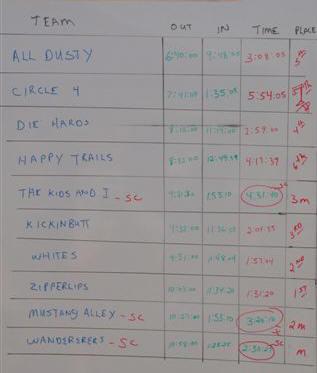 TEAM OUT IN TIME PLACE
ALL DUSTY 6:40:00 9:48:05 3:08:05 5th
CIRCLE 4 7:41:00 1:35:05 5:54:05
DIE HARDS 2:59:00 4th
HAPPY TRAILS 8:32:00 12:49:39 4:17:39 6th
THE KIDS AND I - SC 1:53:10 4:31:40 SC 3m
KICKINBUTT 9:32:00 11:36:55 3RD
WHITES 9:51:00 11:48:04 1:57:04 2ND
ZIPPERLIPS 10:03:00 11:34:20 1:31:20 1ST
MUSTANG ALLEY - SC 10:27:00 1:53:10 3:26:10 2m
WANDERERERS - SC 10:58:00 SC m